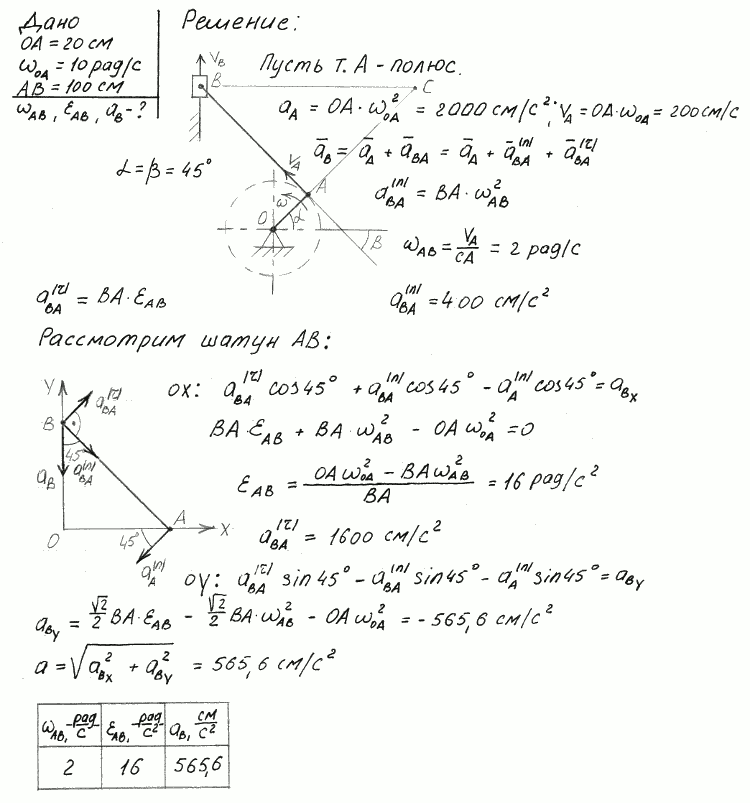 Дано
OA = 20 см
ω_OA = 10 рад/с
AB = 100 см
ω_AB, ε_AB, a_B - ?
Решение:
Пусть т. А - полюс.
V_B
B
C
a_A = OA·ω_OA^2 = 2000 см/с^2; V_A = OA·ω_OA = 200 см/с
ā_B = ā_A + ā_BA = ā_A + ā_BA^(n) + ā_BA^(τ)
α = β = 45°
V_A
A
ω
O
α
β
a_BA^(n) = BA·ω_AB^2
ω_AB = V_A/CA = 2 рад/с
a_BA^(τ) = BA·ε_AB
a_BA^(n) = 400 см/с^2
Рассмотрим шатун АВ:
Y
a_BA^(τ)
B
45°
a_BA^(n)
a_B
O
45°
A
X
a_A^(n)
ox: a_BA^(τ) cos45° + a_BA^(n) cos45° - a_A^(n) cos45° = a_Bx
BA·ε_AB + BA·ω_AB^2 - OA ω_OA^2 = 0
ε_AB = (OA ω_OA^2 - BA ω_AB^2)/BA = 16 рад/с^2
a_BA^(τ) = 1600 см/с^2
oy: a_BA^(τ) sin45° - a_BA^(n) sin45° - a_A^(n) sin45° = a_By
a_By = √2/2 BA·ε_AB - √2/2 BA·ω_AB^2 - OA ω_OA^2 = -565,6 см/с^2
a = √(a_Bx^2 + a_By^2) = 565,6 см/с^2
ω_AB, рад/с ε_AB, рад/с^2 a_B, см/с^2
2 16 565,6